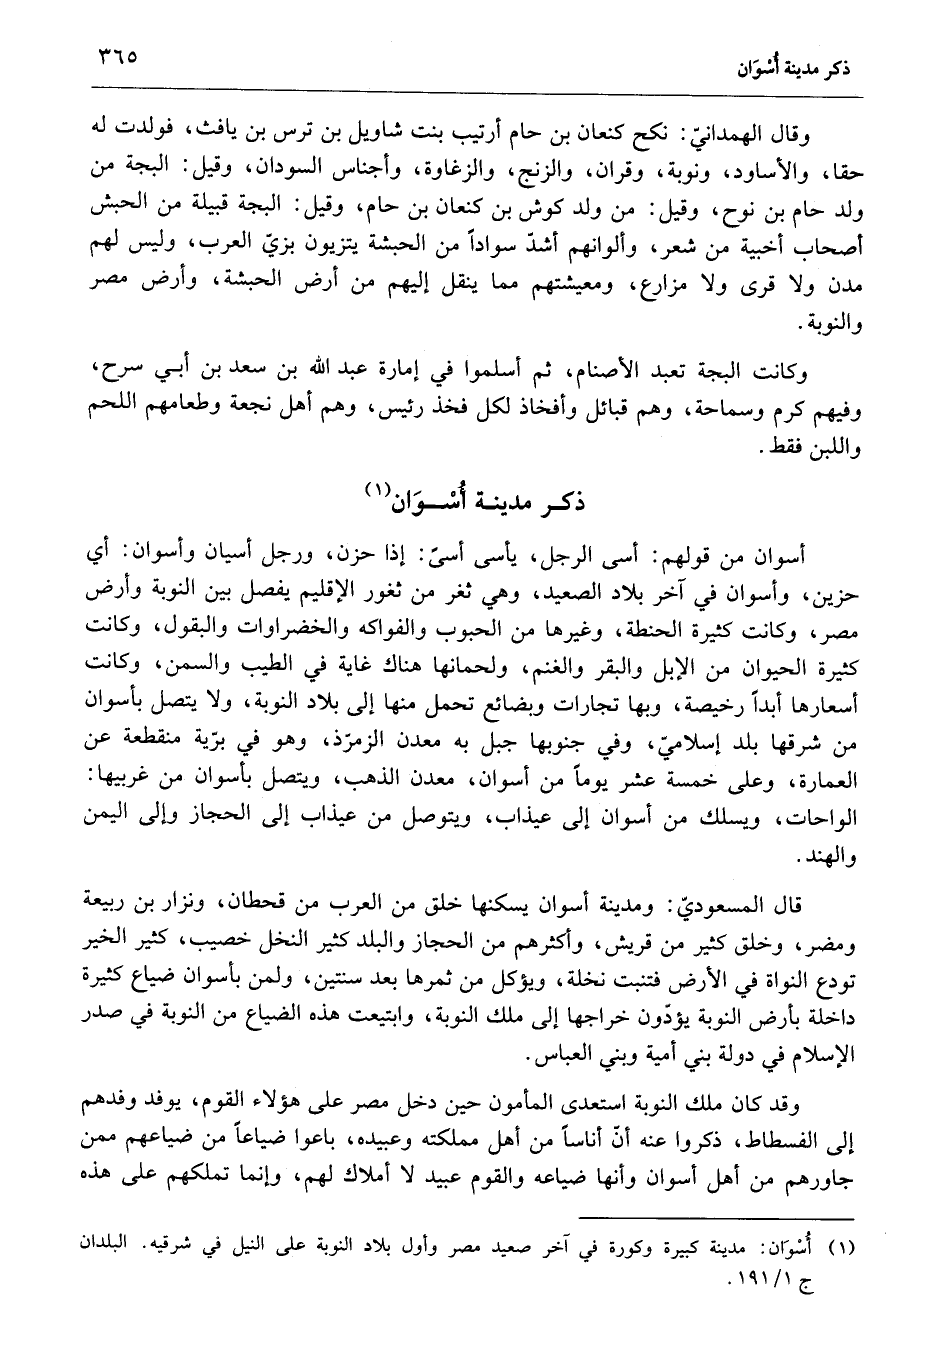 ذكر مدينة أُسْوَان
٣٦٥
وقال الهمدانيّ: نكح كنعان بن حام أرتيب بنت شاويل بن ترس بن يافث، فولدت له
حقا، والأساود، ونوبة، وقران، والزنج، والزغاوة، وأجناس السودان، وقيل: البجة من
ولد حام بن نوح، وقيل: من ولد كوش بن كنعان بن حام، وقيل: البجة قبيلة من الحبش
أصحاب أخبية من شعر، وألوانهم أشدّ سواداً من الحبشة يتزيون بزيّ العرب، وليس لهم
مدن ولا قرى ولا مزارع، ومعيشتهم مما ينقل إليهم من أرض الحبشة، وأرض مصر
والنوبة.
وكانت البجة تعبد الأصنام، ثم أسلموا في إمارة عبد الله بن سعد بن أبي سرح،
وفيهم كرم وسماحة، وهم قبائل وأفخاذ لكل فخذ رئيس، وهم أهل نجعة وطعامهم اللحم
واللبن فقط.
ذكر مدينة أُسْوَان(١)
أسوان من قولهم: أسى الرجل، يأسى أسىً: إذا حزن، ورجل أسيان وأسوان: أي
حزين، وأسوان في آخر بلاد الصعيد، وهي ثغر من ثغور الإقليم يفصل بين النوبة وأرض
مصر، وكانت كثيرة الحنطة، وغيرها من الحبوب والفواكه والخضراوات والبقول، وكانت
كثيرة الحيوان من الإبل والبقر والغنم، ولحمانها هناك غاية في الطيب والسمن، وكانت
أسعارها أبداً رخيصة، وبها تجارات وبضائع تحمل منها إلى بلاد النوبة، ولا يتصل بأسوان
من شرقها بلد إسلاميّ، وفي جنوبها جبل به معدن الزمرّذ، وهو في برّية منقطعة عن
العمارة، وعلى خمسة عشر يوماً من أسوان، معدن الذهب، ويتصل بأسوان من غربيها:
الواحات، ويسلك من أسوان إلى عيذاب، ويتوصل من عيذاب إلى الحجاز وإلى اليمن
والهند.
قال المسعوديّ: ومدينة أسوان يسكنها خلق من العرب من قحطان، ونزار بن ربيعة
ومضر، وخلق كثير من قريش، وأكثرهم من الحجاز والبلد كثير النخل خصيب، كثير الخير
تودع النواة في الأرض فتنبت نخلة، ويؤكل من ثمرها بعد سنتين، ولمن بأسوان ضياع كثيرة
داخلة بأرض النوبة يؤدّون خراجها إلى ملك النوبة، وابتيعت هذه الضياع من النوبة في صدر
الإسلام في دولة بني أمية وبني العباس.
وقد كان ملك النوبة استعدى المأمون حين دخل مصر على هؤلاء القوم، يوفد وفدهم
إلى الفسطاط، ذكروا عنه أنّ أناساً من أهل مملكته وعبيده، باعوا ضياعاً من ضياعهم ممن
جاورهم من أهل أسوان وأنها ضياعه والقوم عبيد لا أملاك لهم، وإنما تملكهم على هذه
(١) أُسْوَان: مدينة كبيرة وكورة في آخر صعيد مصر وأول بلاد النوبة على النيل في شرقيه. البلدان
ج ١٩١/١.